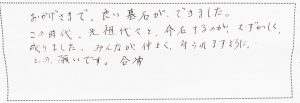 おかげさまで、良い墓石が、できました。
この時代、先祖代々と、命名するのが、むずかしく
成りました、みんなが仲よく、守られますように、
との、願いです。合掌